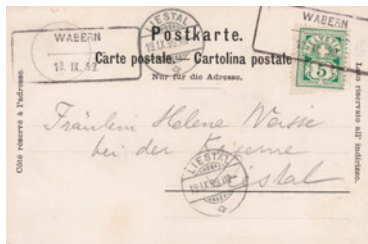 WABERN
18. IX. 99.
LIESTAL
19.IX.99.
WABERN
Postkarte.
Carte postale. — Cartolina postale
Nur für die Adresse.
Côté réservé à l'adresse.
Lato riservato all' indirizzo.
5
Fräulein Helene Weisse
bei der Kaserne
Liestal
LIESTAL
19.IX.99.